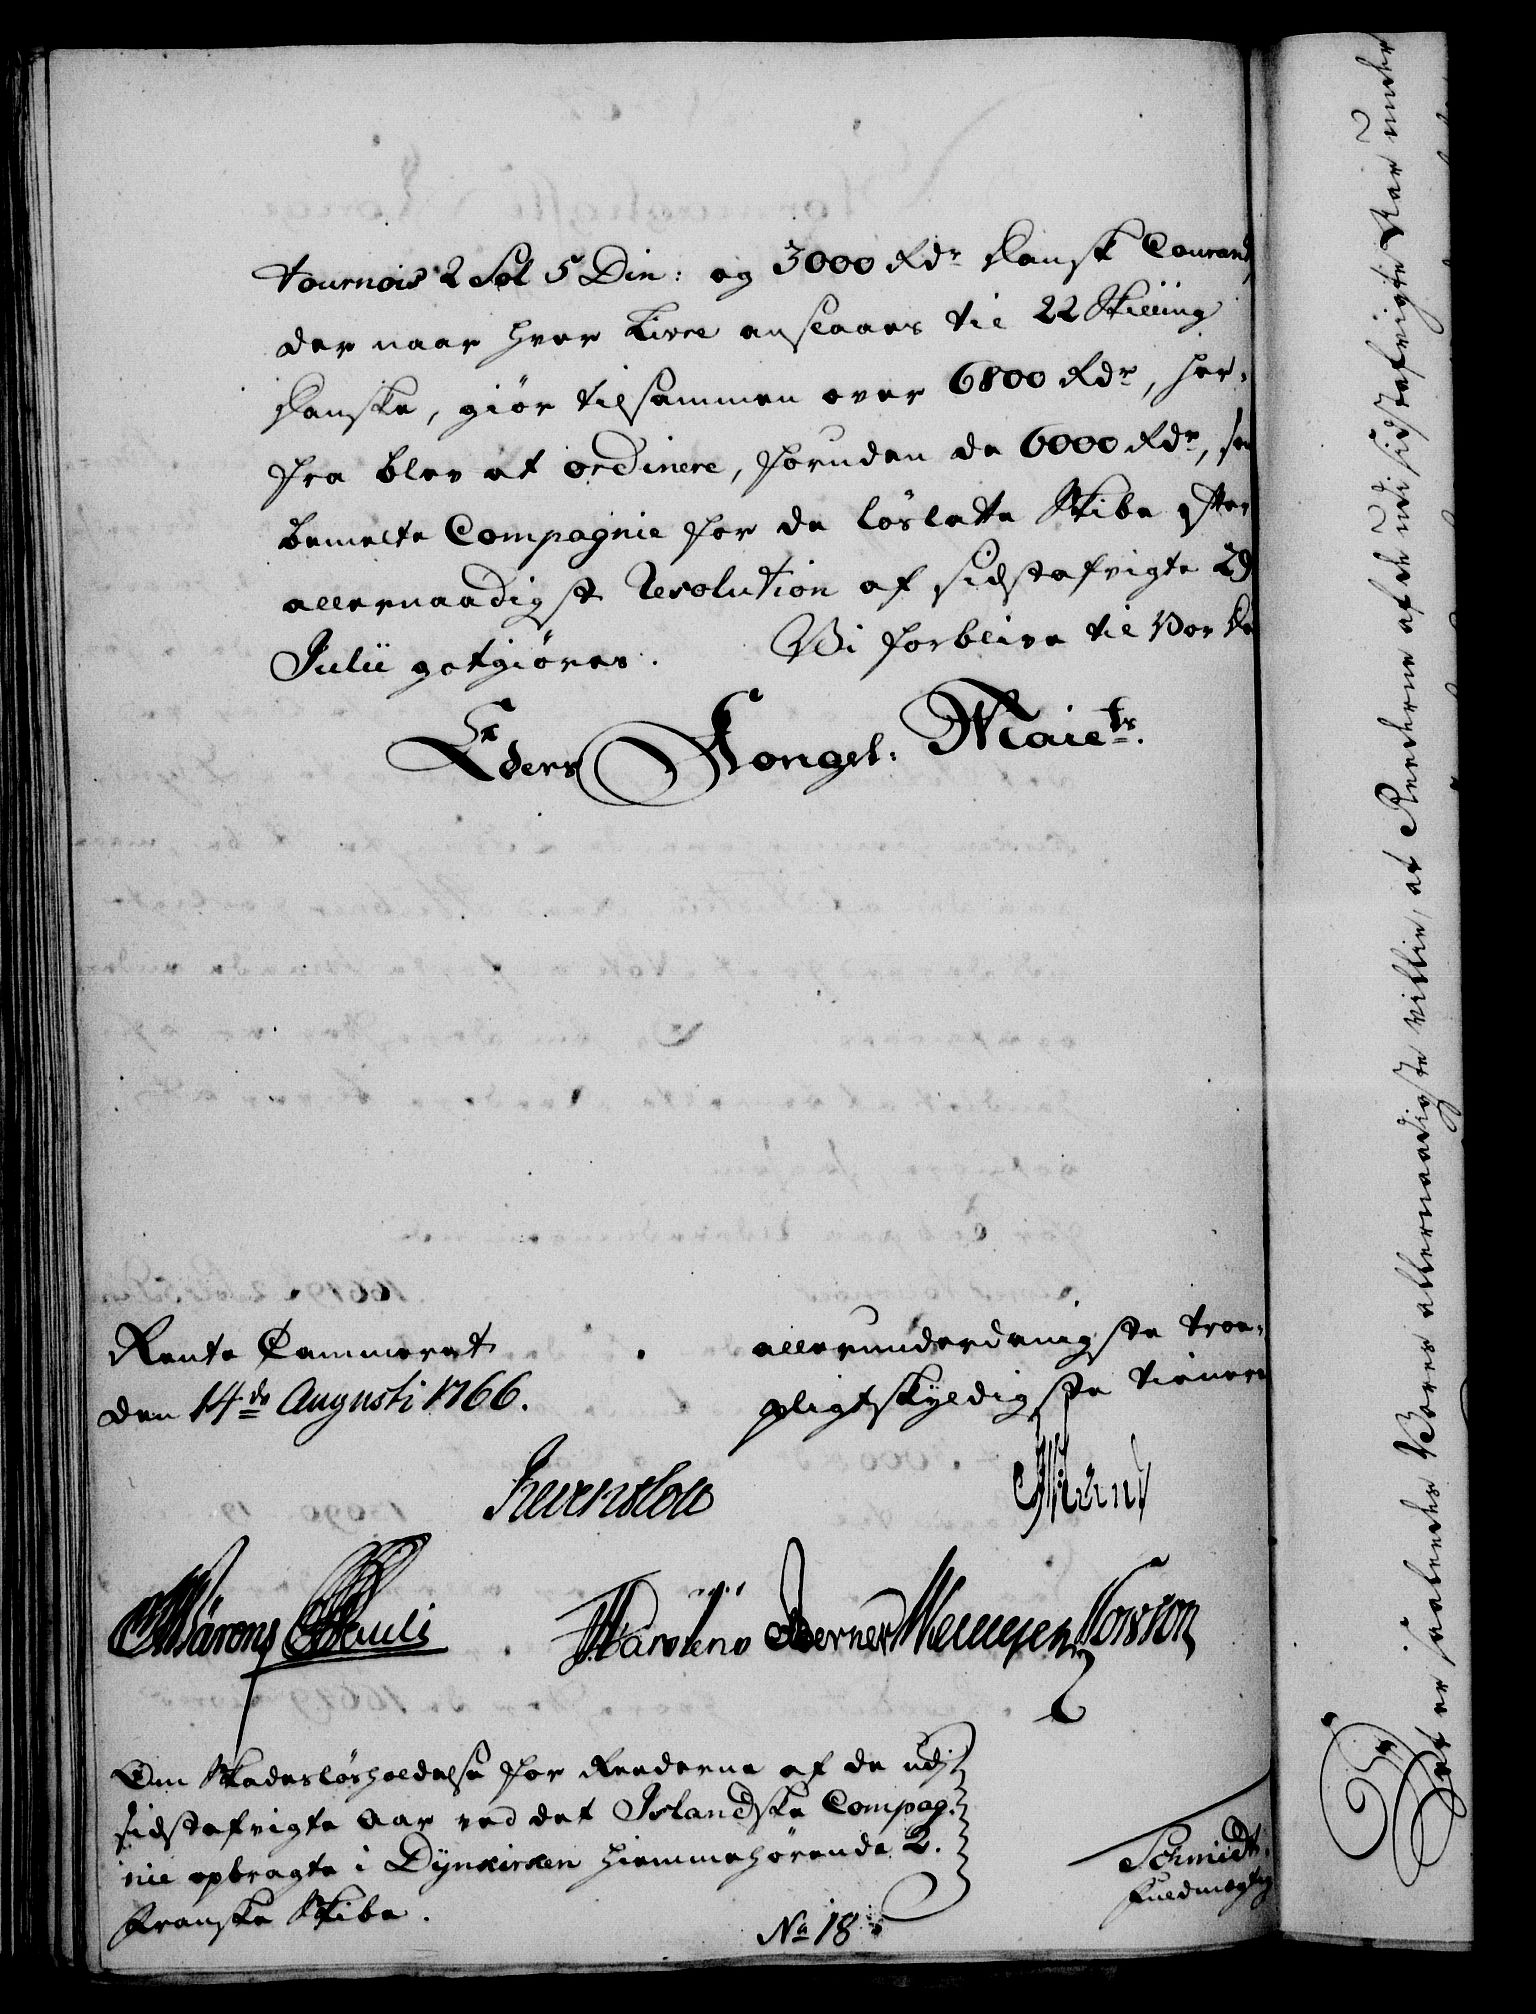 tournois 2 Sol 5 Din: og 3000 Rdr dansk Courant,
der naar hver Livre anslaaes til 22 Skilling
danske, giör tilsammen over 6800 Rdr, her-
fra blev at ordinere, foruden de 6000 Rdr, som
bemelte Compagnie for de löslatte Skibe efter
allernaadigst Resolution af sidstafvigte 29
Julii godtgiöres. Vi forblive til Vor Dö
Eders Kongel: Maiets.
Rente Cammeret
den 14de Augusti 1766.
allerunderdanigste troe-
pligtskyldigste tienere
Pauli
Berner
Om Skadeslösholdelse for Reederne af de udj
sidstafvigte Aar ved det Islandske Compag-
nie opbragte i Dynkirken hiemmehörende 2.
Franske Skibe.
No 18
Schmidt.
Fuldmegtig
Det er saaledes Vores allernaadigste villie, at Reederne af de udi sidstafvigte Aar under